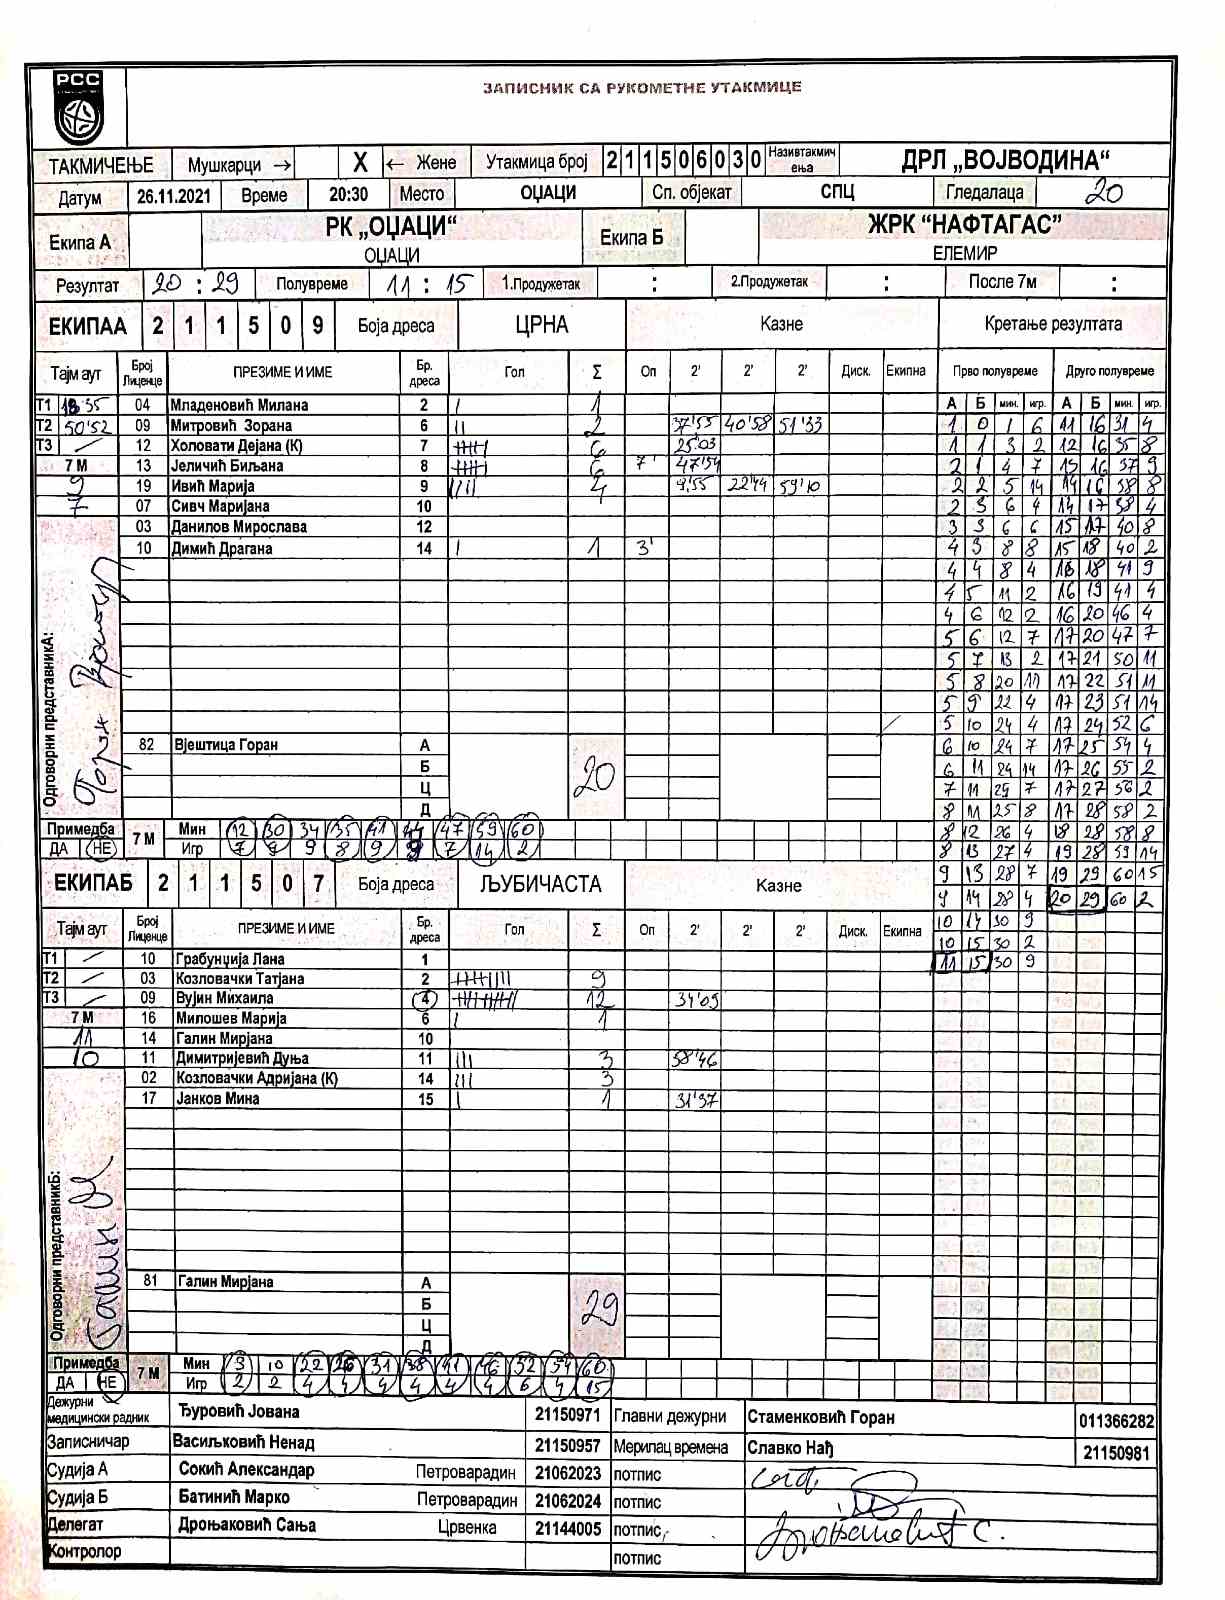 РСС
ЗАПИСНИК СА РУКОМЕТНЕ УТАКМИЦЕ
ТАКМИЧЕЊЕ Мушкарци → X ← Жене Утакмица број 2 1 1 5 0 6 0 3 0 Називтакмич ења ДРЛ „ВОЈВОДИНА“
Датум 26.11.2021 Време 20:30 Место ОЏАЦИ Сп. објекат СПЦ Гледалаца 20
Екипа А РК „ОЏАЦИ“ Екипа Б ЖРК “НАФТАГАС”
ОЏАЦИ ЕЛЕМИР
Резултат 20 : 29 Полувреме 11 : 15 1.Продужетак : 2.Продужетак : После 7м :
ЕКИПАА 2 1 1 5 0 9 Боја дреса ЦРНА Казне Кретање резултата
Тајм аут Број Лиценце ПРЕЗИМЕ И ИМЕ Бр. дреса Гол Σ Оп 2' 2' 2' Диск. Екипна Прво полувреме Друго полувреме
Т1 04 Младеновић Милана 2 1 А Б мин. игр. А Б мин. игр.
Т2 50'52 09 Митровић Зорана 6 2 37'55 40'58 51'33 1 0 1 6 11 16 31 4
Т3 12 Холовати Дејана (К) 7 6 25'03 1 1 3 2 12 16 35 8
7 М 13 Јеличић Биљана 8 6 7' 47'54 2 1 4 7 13 16 37 9
9 19 Ивић Марија 9 4 9'55 22'44 59'10 2 2 5 14 14 16 38 8
7 07 Сивч Маријана 10 2 3 6 4 14 17 38 4
03 Данилов Мирослава 12 3 3 6 6 15 17 40 8
10 Димић Драгана 14 1 3' 4 3 8 8 15 18 40 2
4 4 8 4 16 18 41 9
4 5 11 2 16 19 41 4
4 6 12 2 16 20 46 4
5 6 12 7 17 20 47 7
5 7 13 2 17 21 50 11
5 8 20 11 17 22 51 11
5 9 22 4 17 23 51 14
5 10 24 4 17 24 52 6
82 Вјештица Горан А 20 6 10 24 7 17 25 54 4
Б 6 11 24 14 17 26 55 2
Ц 7 11 25 7 17 27 56 2
Д 8 11 25 8 17 28 58 2
Одговорни представникА:
Примедба 7 М Мин 12 30 34 35 41 44 47 59 60 8 12 26 4 18 28 58 8
ДА НЕ Игр 7 9 9 8 9 9 7 14 2 8 13 27 4 19 28 59 14
ЕКИПАБ 2 1 1 5 0 7 Боја дреса ЉУБИЧАСТА Казне 9 13 28 7 19 29 60 15
9 14 28 4 20 29 60 2
Тајм аут Број Лиценце ПРЕЗИМЕ И ИМЕ Бр. дреса Гол Σ Оп 2' 2' 2' Диск. Екипна 10 14 30 9
10 15 30 2
Т1 10 Грабунџија Лана 1 11 15 30 9
Т2 03 Козловачки Татјана 2 9
Т3 09 Вујин Михаила 4 12 34'09
7 М 16 Милошев Марија 6 1
11 14 Галин Мирјана 10
10 11 Димитријевић Дуња 11 3 58'46
02 Козловачки Адријана (К) 14 3
17 Јанков Мина 15 1 31'37
Одговорни представникБ:
81 Галин Мирјана А 29
Б
Ц
Д
Примедба 7 М Мин 3 10 22 26 31 38 41 46 52 54 60
ДА НЕ Игр 2 2 4 4 4 4 4 4 6 4 15
Дежурни медицински радник Ђуровић Јована 21150971 Главни дежурни Стаменковић Горан 011366282
Записничар Васиљковић Ненад 21150957 Мерилац времена Славко Нађ 21150981
Судија А Сокић Александар Петроварадин 21062023 потпис
Судија Б Батинић Марко Петроварадин 21062024 потпис
Делегат Дроњаковић Сања Црвенка 21144005 потпис,
Контролор потпис